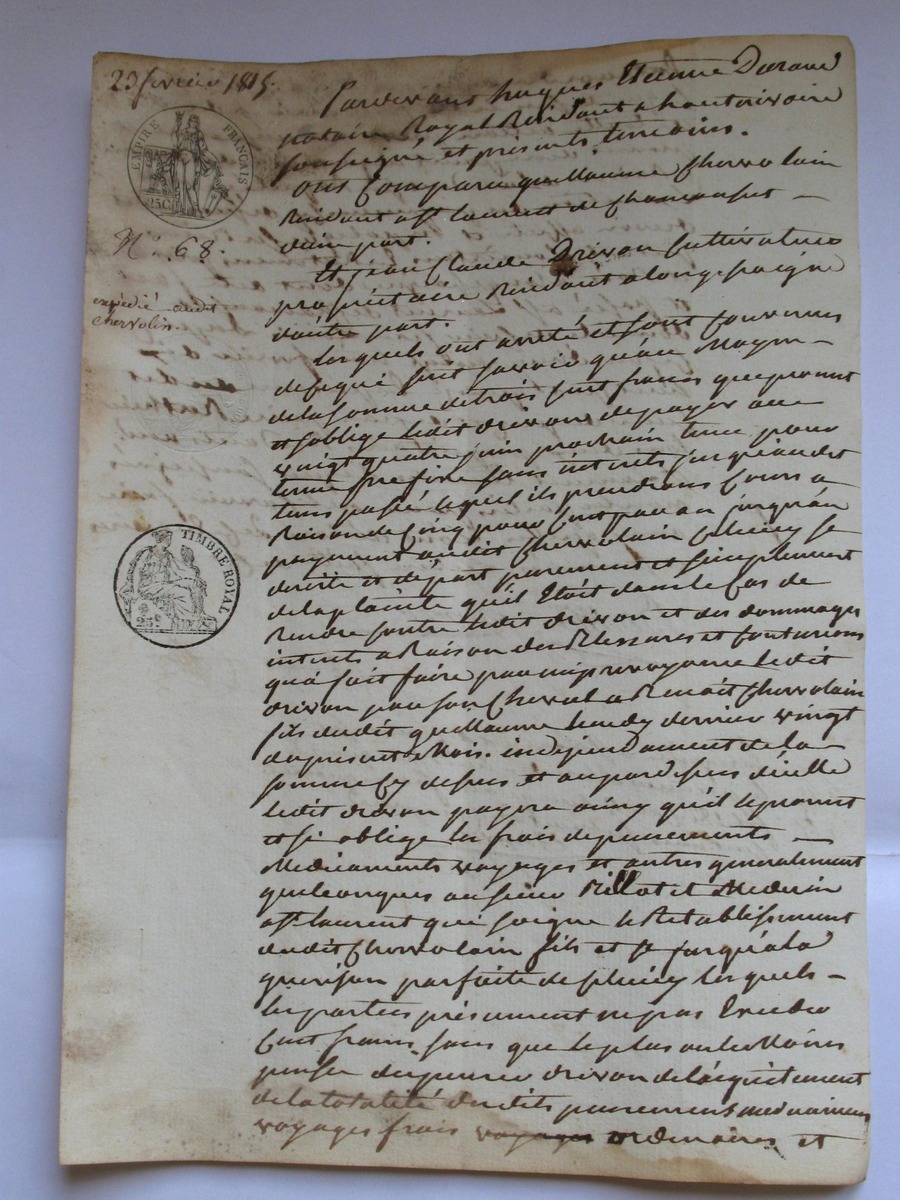 23 fevrier 1815.
EMPIRE FRANÇAIS
25C
N.º 68.
expédié audit
chervolin.
TIMBRE ROYAL
25c
Pardevant hugues Etienne Durand
notaire Royal Résidant a hauterivoire
soussigné et présents temoins.
ont Comparu guillaume Chervolain
Résidant a st laurent de chamousset
d'une part.
Et jean Claude Drivon cultivateur
propriétaire Résidant a longessaigne
d'autre part.
lesquels ont arreté et sont convenus
de ce qui suit savoir qu'au Moyen
de la somme de trois cent francs que promet
et s'oblige ledit drivon de payer au
vingt quatre juin prochain terme pour
terme prefixe sans interets jusqu'audit
tems passé lequel ils prendront Cours a
Raison de Cinq pour Cent par an jusqu'au
payement audit Chervolain Celuicy se
desiste et départ purement et simplement
de la plainte qu'il Etait dans le Cas de
Rendre contre ledit drivon et des dommages
interets a Raison des Blessures et contusions
qu'a fait faire par imprevoyance ledit
drivon par son Cheval a Benoit Chervolain
fils dudit guillaume lundy dernier vingt
du présent Mois. independament de la
somme Cy dessus et au par dessus d'icelle
ledit drivon payera ainsy qu'il le promet
et s'y oblige les frais de pansements
Medicaments voyages et autres generalement
quelconques au sieur Médecin
a st laurent qui soigne le Retablissement
dudit Chervolain fils et Ce jusqu'a la
guerison parfaite de Celuicy lesquels
les parties présument ne pas Exceder
Cent francs, sans que le plus ou le Moins
puisse dispenser drivon de l'acquittement
de la totalité desdits pansements medicaments
voyages frais voyages ordinaires et